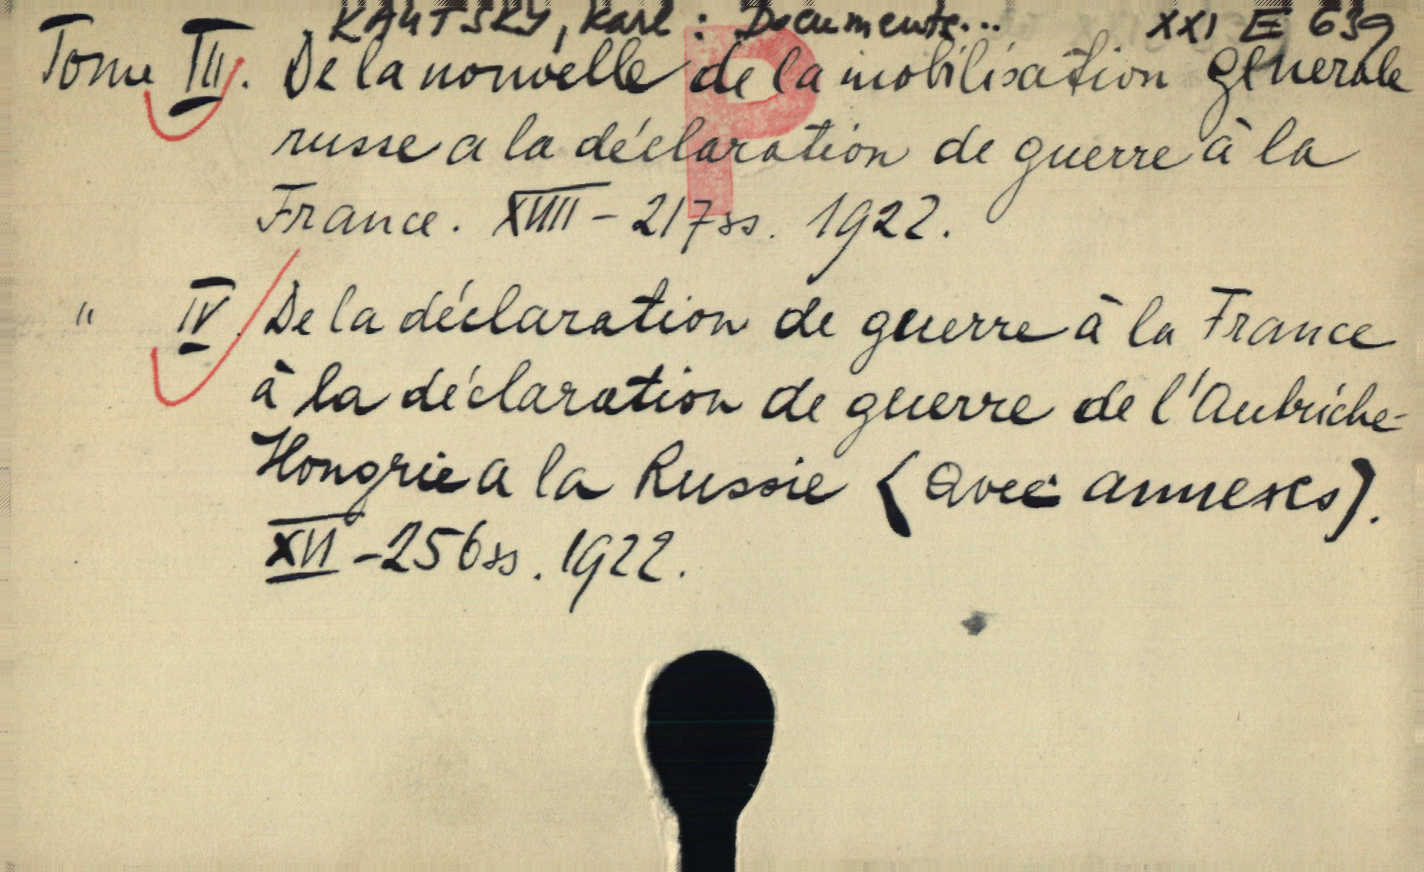 KAUTSKY, Karl: Documents... XXI E 639
Tome III. De la nouvelle de la mobilisation generale
russe a la déclaration de guerre à la
France. XVIII - 217ss. 1922.
" IV. De la déclaration de guerre à la France
à la déclaration de guerre de l'Autriche-
Hongrie a la Russie (avec annexes).
XII - 256ss. 1922.
P